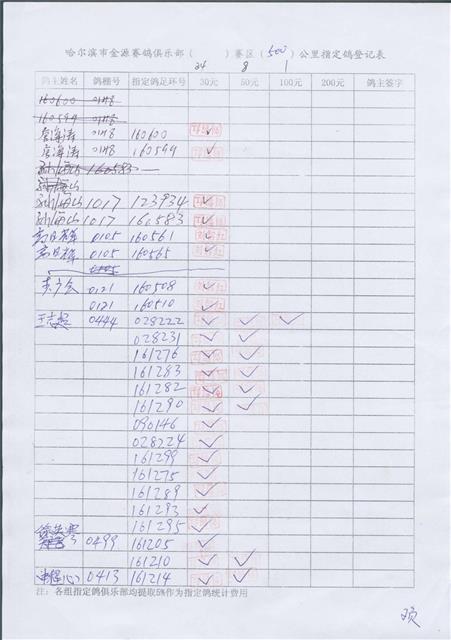 哈尔滨市金源赛鸽俱乐部（ ）赛区（500）公里指定鸽登记表
24 8 1
鸽主姓名 鸽棚号 指定鸽足环号 30元 50元 100元 200元 鸽主签字
160600 0148
160599 0148
海涛 0148 160600 ✓
海涛 0148 160599 ✓
160583
孙海山
孙海山 1017 123934 ✓
孙海山 1017 160583 ✓
0105 160561 ✓
0105 160565 ✓
0105
0121 160508 ✓
0121 160510 ✓
0444 028222 ✓ ✓ ✓
028231 ✓ ✓
161276 ✓ ✓
161283 ✓ ✓
161282 ✓ ✓
161290 ✓ ✓
090146 ✓
028224 ✓
161299 ✓
161275 ✓
161289 ✓
161293 ✓
161295 ✓
0499 161205 ✓
161210 ✓ ✓
0413 161214 ✓ ✓
注：各组指定鸽俱乐部均提取5%作为指定鸽统计费用